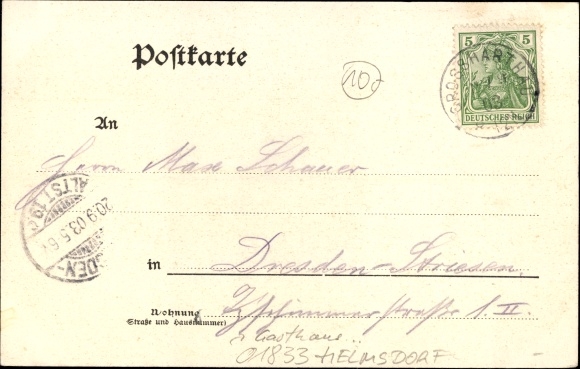 Postkarte
10,-
5 5
GROSSHARTHAU
03
DEUTSCHES REICH
An
Herrn Max Schauer
ALTST. 19.c
20.9.03.5-6
DEN-
in Dresden-Striesen,
Wohnung
(Straße und Hausnummer)
straße 1. II.
Gasthaus...
01833 HELMSDORF